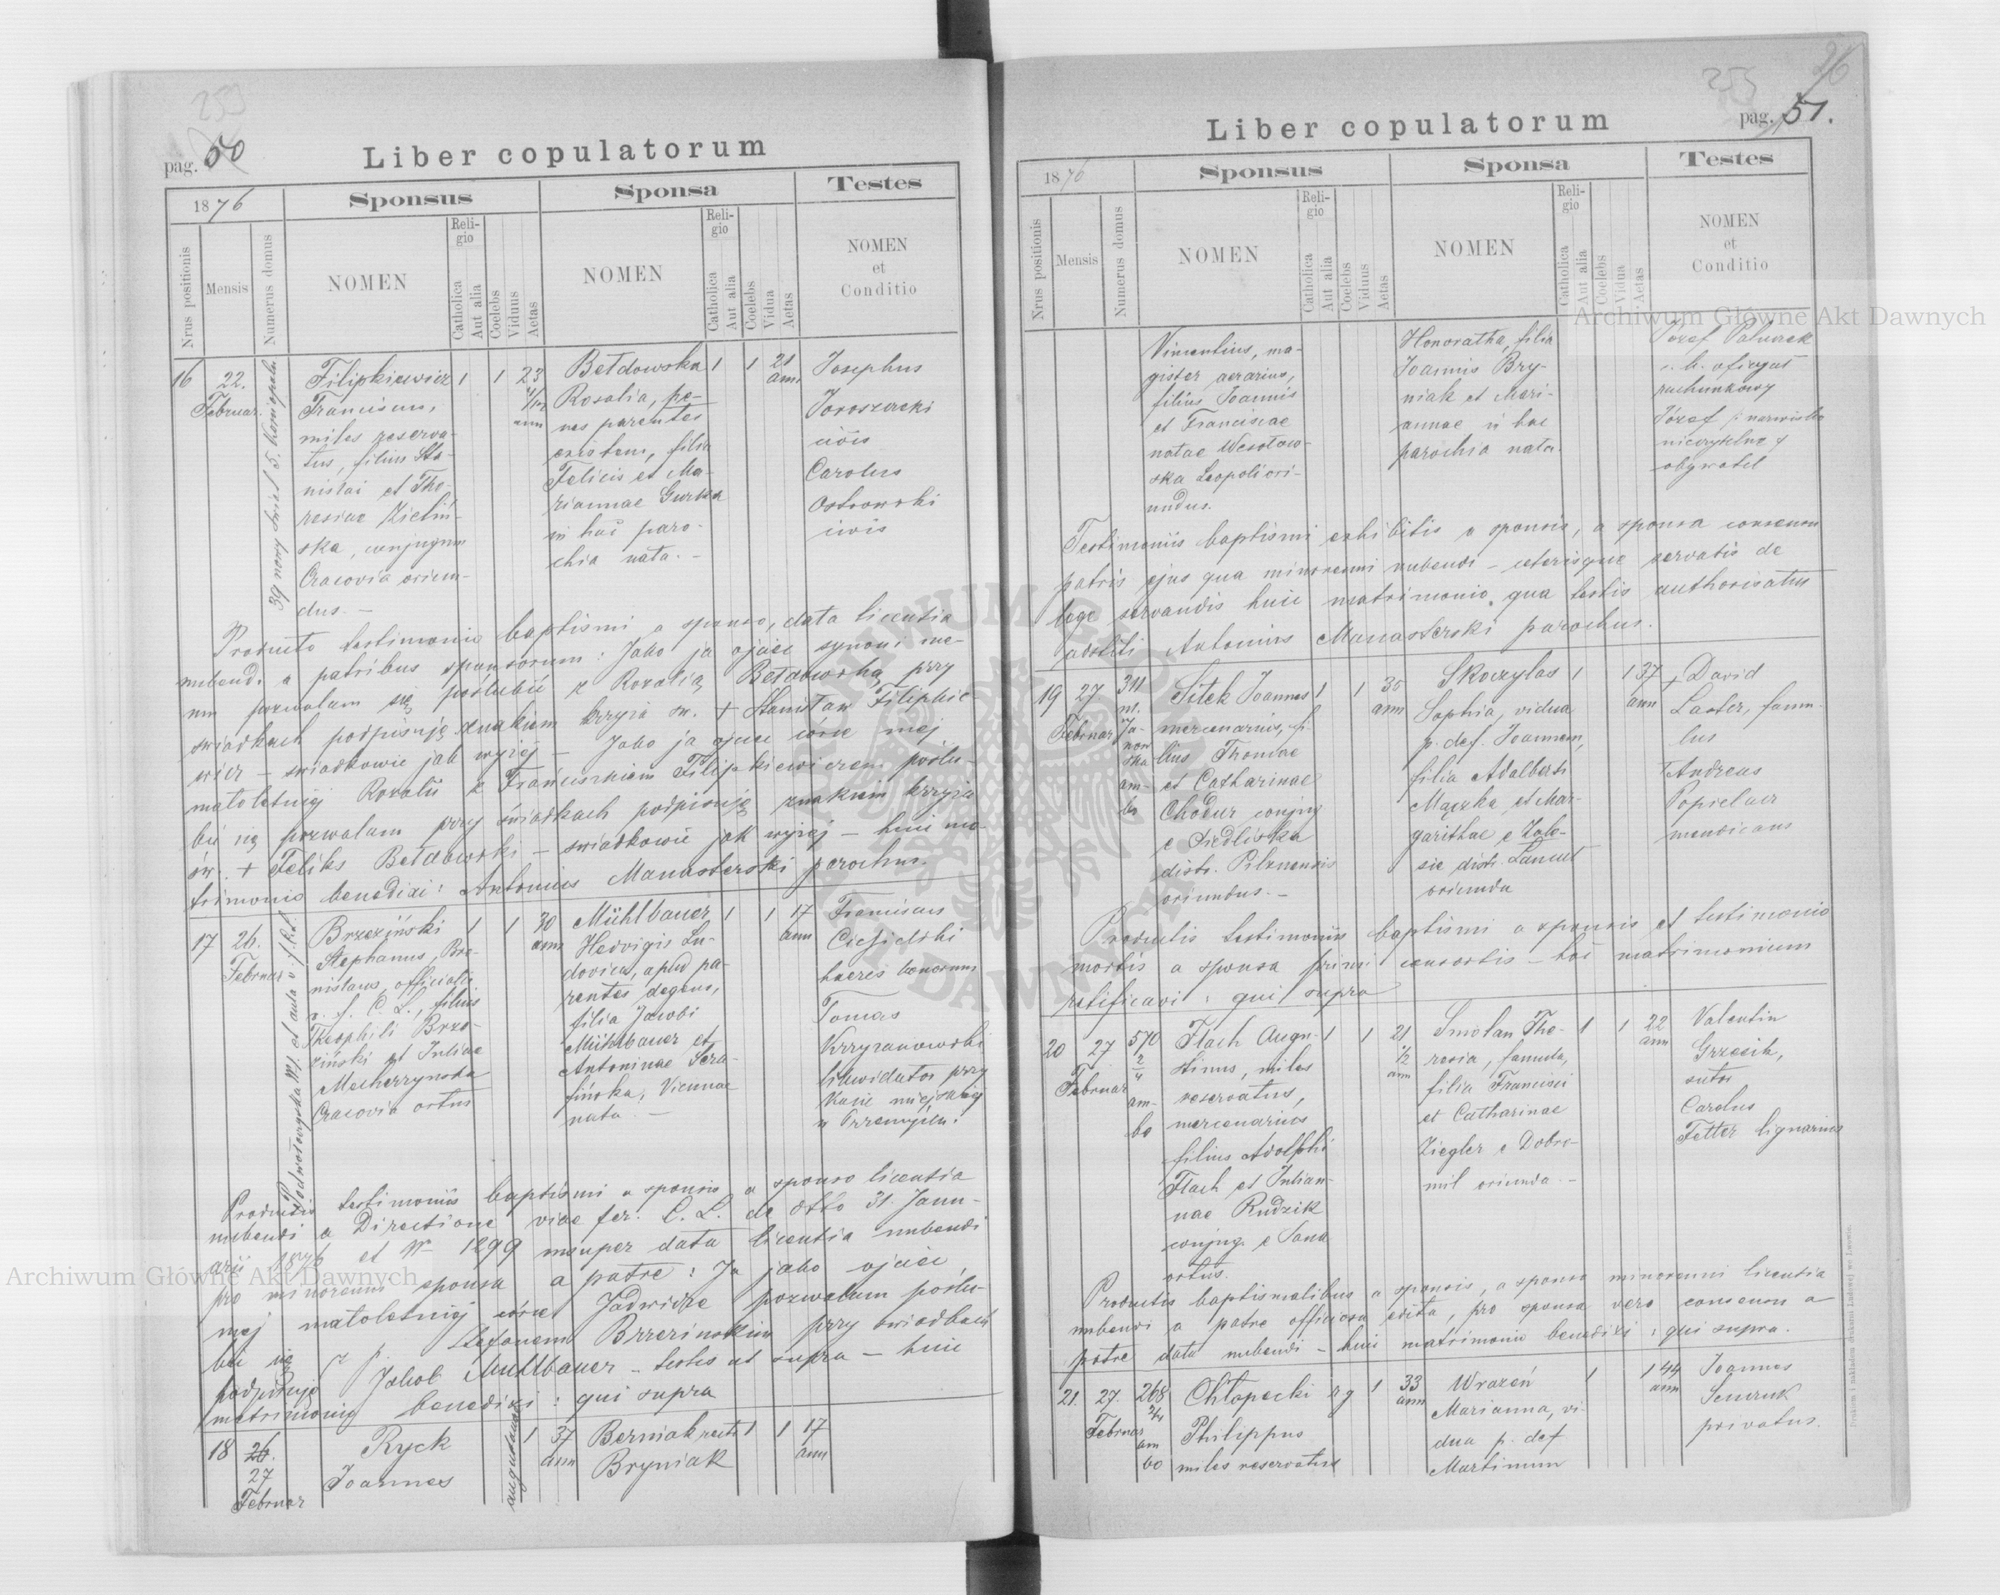 pag. 50
Liber copulatorum
1876
Sponsus
Sponsa
Testes
Nrus positionis
Mensis
Numerus domus
NOMEN
Religio
Catholica
Aut alia
Coelebs
Viduus
Aetas
NOMEN
Religio
Catholica
Aut alia
Coelebs
Vidua
Aetas
NOMEN
et
Conditio
16
22.
Februar.
39 nowy Świat
Filipkiewicz
Franciscus,
miles reserva-
tus, filius Sta-
nislai et The-
resiae Zieliń-
ska, conjugum
Cracovia oriun-
dus. –
1 1 23
ann
Bełdowska
Rosalia, pe-
nes parentes
existens, filia
Felicis et Ma-
riannae Gurska
in hac paro-
chia nata. –
1 1 21
ann.
Josephus
civis
Carolus
Ostrowski
civis
Producto testimonio baptismi a sponso, data licentia
nubendi a patribus sponsorum: Jako ja ojciec synowi me-
mu pozwalam się poślubić z Rozalią Bełdowską przy
świadkach podpisuję znakiem krzyża św. + Stanisław Filipkie
wicz – świadkowie jak wyżej – Jako ja ojciec córce mej
małoletniej Rozalii z Franciszkiem Filipkiewiczem poślu-
bić się pozwalam przy świadkach podpisuję znakiem krzyża
św. + Feliks Bełdowski – świadkowie jak wyżej – huic ma-
trimonio benedixi: Antonius Manasterski parochus.
17
26.
Februar
Brzeziński
Stephanus, Bro-
nislaus, officialis
v. f. C. L., filius
Theophili Brze-
ziński et Juliae
Cracovia ortus
1 1 30
ann
Mühlbauer
Hedvigis Lu-
dovica, apud pa-
rentes degens,
filia Jacobi
Mühlbauer et
Antoninae Sera-
fińska, Viennae
nata –
1 1 17
ann
Franciscus
Ciesielski
haeres bonorum
Tomas
Krzyzanowski
likwidator przy
Kasie miejskiej
w Przemyślu.
Productis testimoniis baptismi a sponsis a sponso licentia
nubendi a Directione viae fer. C. L. de dtto 31. Janu-
arii 1876 et Nr 1299 data licentia nubendi
pro minorenni sponsa a patre: Ja jako ojciec
mej małoletniej córce Jadwidze pozwalam poślu-
bić się z p. Stefanem Brzezinskim przy świadkach
podpisuję Jakob Muhlbauer – testes ut supra – huic
matrimonio benedixi: qui supra
18
26.
27
Februar
Ryck
Joannes
1 37
ann
Berniak recte
Bryniak
1 1 17
ann
pag. 51.
Liber copulatorum
1876
Sponsus
Sponsa
Testes
Nrus positionis
Mensis
Numerus domus
NOMEN
Religio
Catholica
Aut alia
Coelebs
Viduus
Aetas
NOMEN
Religio
Catholica
Aut alia
Coelebs
Vidua
Aetas
NOMEN
et
Conditio
Vincentius, ma-
gister aerarius,
filius Joannis
et Franciscae
natae Wesołow-
ska Leopoli ori-
undus.
Honoratha, filia
Joannis Bry-
niak et Mari-
annae in hac
parochia nata
Józef
rachunkowy
Józef
obywatel
Testimoniis baptismi exhibitis a sponsis, a sponsa consensu
patris ejus qua minorenni nubendi – ceterisque servatis de
lege servandis huic matrimonio qua testis authorisatus
adstiti Antonius Manasterski parochus.
19
27
Februar
311
am-
bo
Sitek Joannes
mercenarius, fi-
lius Thomae
et Catharinae
Chodur conjug
e Siedliska
distr. Pilznensis
oriundus. –
1 1 35
ann
Skoczylas
Sophia, vidua
p. def. Joannem,
filia Adalberti
Mączka et Mar-
garithae e Zale-
sie distr. Łancut
oriunda
1 1 37
ann
+ David
Laster, famu-
lus
+ Andreas
Popielarz
mendicans
Productis testimoniis baptismi a sponsis et testimonio
mortis a sponsa primi consortis – hoc matrimonium
ratificavi: qui supra
20
27
Februar
570
2/4
am-
bo
Flach Augu-
stinus, miles
reservatus,
mercenarius
filius Adolphi
Flach et Julian-
nae Rudzik
conjug. e Sana
ortus.
1 1 21
1/2
ann
Smolan The-
resia, famula,
filia Francisci
et Catharinae
Ziegler e Dobro-
mil oriunda. –
1 1 22
ann
Valentin
Grzesik,
sutor
Carolus
Fetter lignarius
Productis baptismalibus a sponsis, a sponso minorenni licentia
nubendi a patre officiosa edita, pro sponsa vero consensu a
patre data nubendi – huic matrimonio benedixi: qui supra.
21.
27.
Februar
268
3/4
am
bo
Chłopecki
Philippus
miles reservatus
1 33
ann
Wrazeń
Marianna, vi-
dua p. def
Martinum
1 1 44
ann
Joannes
privatus.
Archiwum Główne Akt Dawnych
Archiwum Główne Akt Dawnych
ARCHIWUM GŁÓWNE AKT DAWNYCH